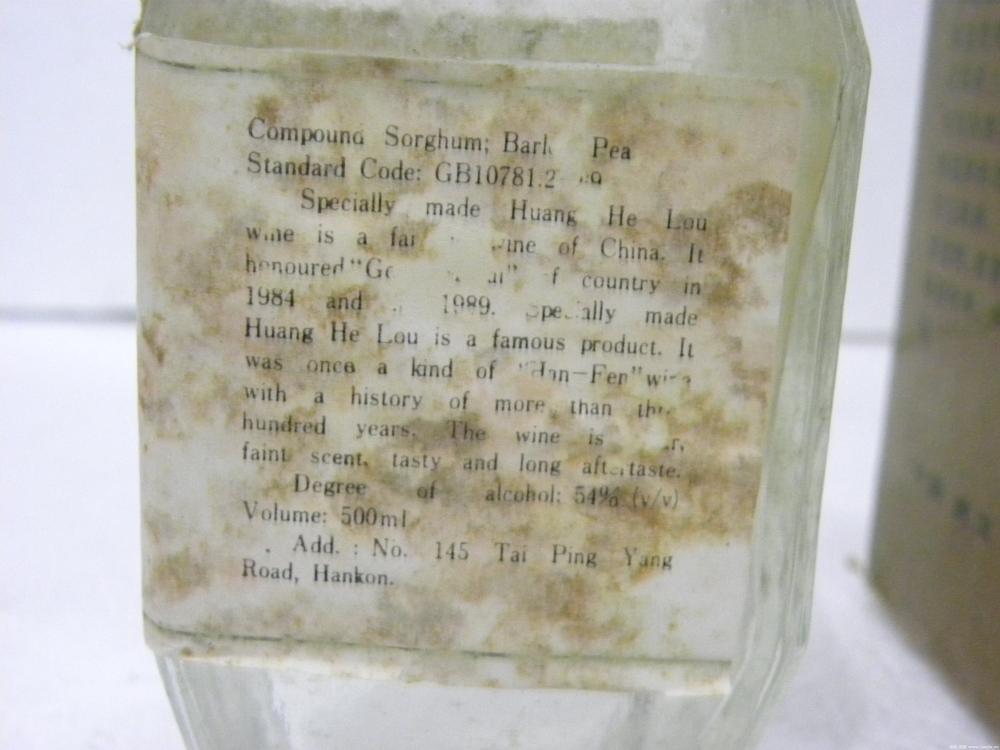 Compound Sorghum; Pea
Standard Code: GB10781.2
Specially made Huang He Lou
wine is a of China. It
honoured country in
1984 and 1989. Specially made
Huang He Lou is a famous product. It
was once a kind of "Han-Fen" wine
with a history of more than
hundred years. The wine is
faint scent, tasty and long aftertaste.
Degree of alcohol: 54% (v/v)
Volume: 500ml
Add. : No. 145 Tai Ping Yang
Road, Hankon.